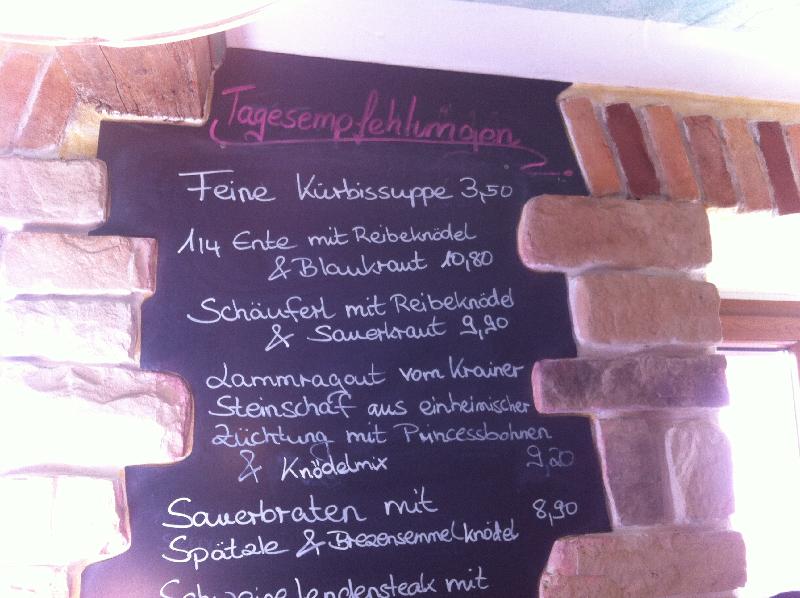 Tagesempfehlungen
Feine Kürbissuppe 3,50
1/4 Ente mit Reibeknödel
& Blaukraut 10,80
Schäuferl mit Reibeknödel
& Sauerkraut 9,90
Lammragout vom Krainer
Steinschaf aus einheimischer
Züchtung mit Princessbohnen
& Knödelmix 9,20
Sauerbraten mit 8,90
Spätzle & Brezensemmelknödel
Schweinelendensteak mit